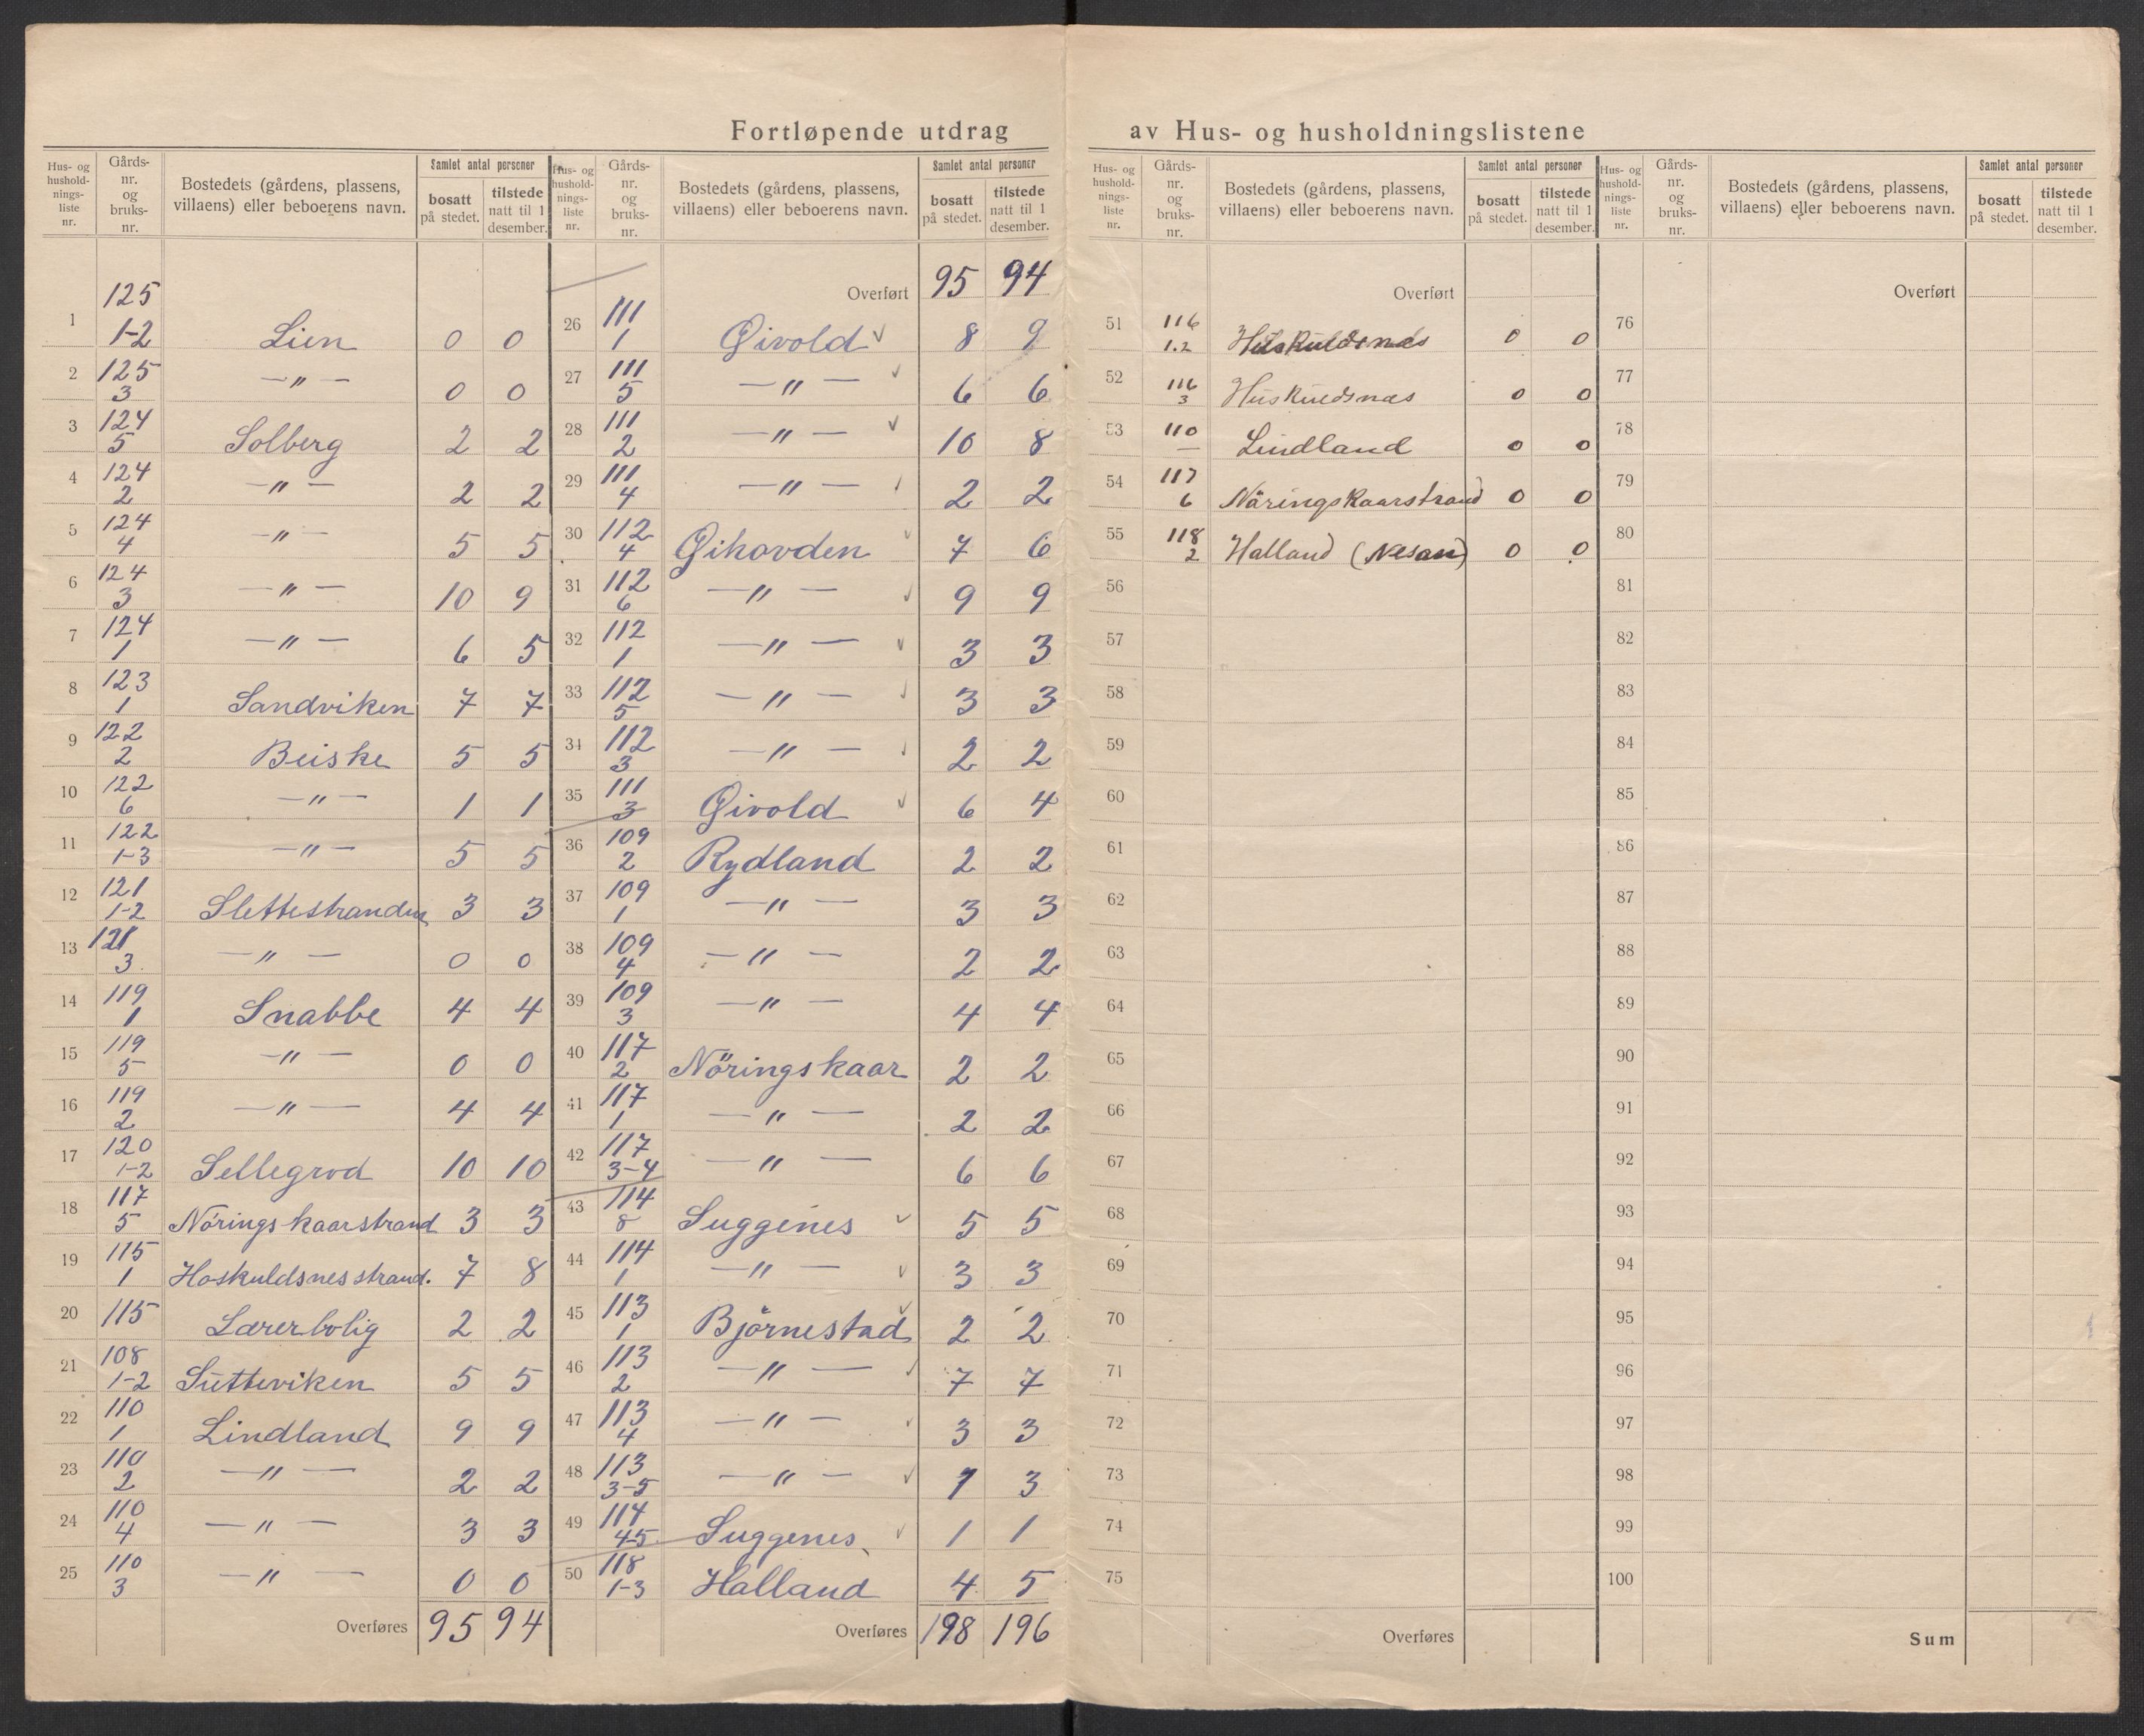 Fortløpende utdrag av Hus- og husholdningslistene
Hus- og husholdnings-liste nr. | Gårds-nr. og bruks-nr. | Bostedets (gårdens, plassens, villaens) eller beboerens navn. | Samlet antal personer | bosatt på stedet. | tilstede natt til 1 desember.
1 125 1-2 Lien 0 0
2 125 3 —〃— 0 0
3 124 5 Solberg 2 2
4 124 2 —〃— 2 2
5 124 4 —〃— 5 5
6 124 3 —〃— 10 9
7 124 1 —〃— 6 5
8 123 1 Sandviken 7 7
9 122 2 Beiske 5 5
10 122 6 —〃— 1 1
11 122 1-3 —〃— 5 5
12 121 1-2 Slettestranden 3 3
13 121 3 —〃— 0 0
14 119 1 Snabbe 4 4
15 119 5 —〃— 0 0
16 119 2 —〃— 4 4
17 120 1-2 Sellegrod 10 10
18 117 5 Nöringskaarstrand 3 3
19 115 1 Hoskuldsnesstrand. 7 8
20 115 Lærerbolig 2 2
21 108 1-2 Sutteviken 5 5
22 110 1 Lindland 9 9
23 110 2 —〃— 2 2
24 110 4 —〃— 3 3
25 110 3 —〃— 0 0
Overføres 95 94
Hus- og husholdnings-liste nr. | Gårds-nr. og bruks-nr. | Bostedets (gårdens, plassens, villaens) eller beboerens navn. | Samlet antal personer | bosatt på stedet. | tilstede natt til 1 desember.
Overført 95 94
26 111 1 Givold 8 9
27 111 5 —〃— 6 6
28 111 2 —〃— 10 8
29 111 4 —〃— 2 2
30 112 4 Gikovden 7 6
31 112 6 —〃— 9 9
32 112 1 —〃— 3 3
33 112 5 —〃— 3 3
34 112 3 —〃— 2 2
35 111 3 Givold 6 4
36 109 2 Rydland 2 2
37 109 1 —〃— 3 3
38 109 4 —〃— 2 2
39 109 3 —〃— 4 4
40 117 2 Nöringskaar 2 2
41 117 1 —〃— 2 2
42 117 3-4 —〃— 6 6
43 114 8 Suggenes 5 5
44 114 1 —〃— 3 3
45 113 1 Björnestad 2 2
46 113 2 —〃— 7 7
47 113 4 —〃— 3 3
48 113 3-5 —〃— 1 3
49 114 4-5 Suggenes 1 1
50 118 1-3 Halland 4 5
Overføres 198 196
Hus- og husholdnings-liste nr. | Gårds-nr. og bruks-nr. | Bostedets (gårdens, plassens, villaens) eller beboerens navn. | Samlet antal personer | bosatt på stedet. | tilstede natt til 1 desember.
Overført
51 116 1.2 Huskuldsnæs 0 0
52 116 3 Huskuldsnæs 0 0
53 110 — Lindland 0 0
54 117 6 Nöringskaarstrand 0 0
55 118 2 Halland (Nesan) 0 0
56
57
58
59
60
61
62
63
64
65
66
67
68
69
70
71
72
73
74
75
Overføres
Hus- og husholdnings-liste nr. | Gårds-nr. og bruks-nr. | Bostedets (gårdens, plassens, villaens) eller beboerens navn. | Samlet antal personer | bosatt på stedet. | tilstede natt til 1 desember.
Overført
76
77
78
79
80
81
82
83
84
85
86
87
88
89
90
91
92
93
94
95
96
97
98
99
100
Sum